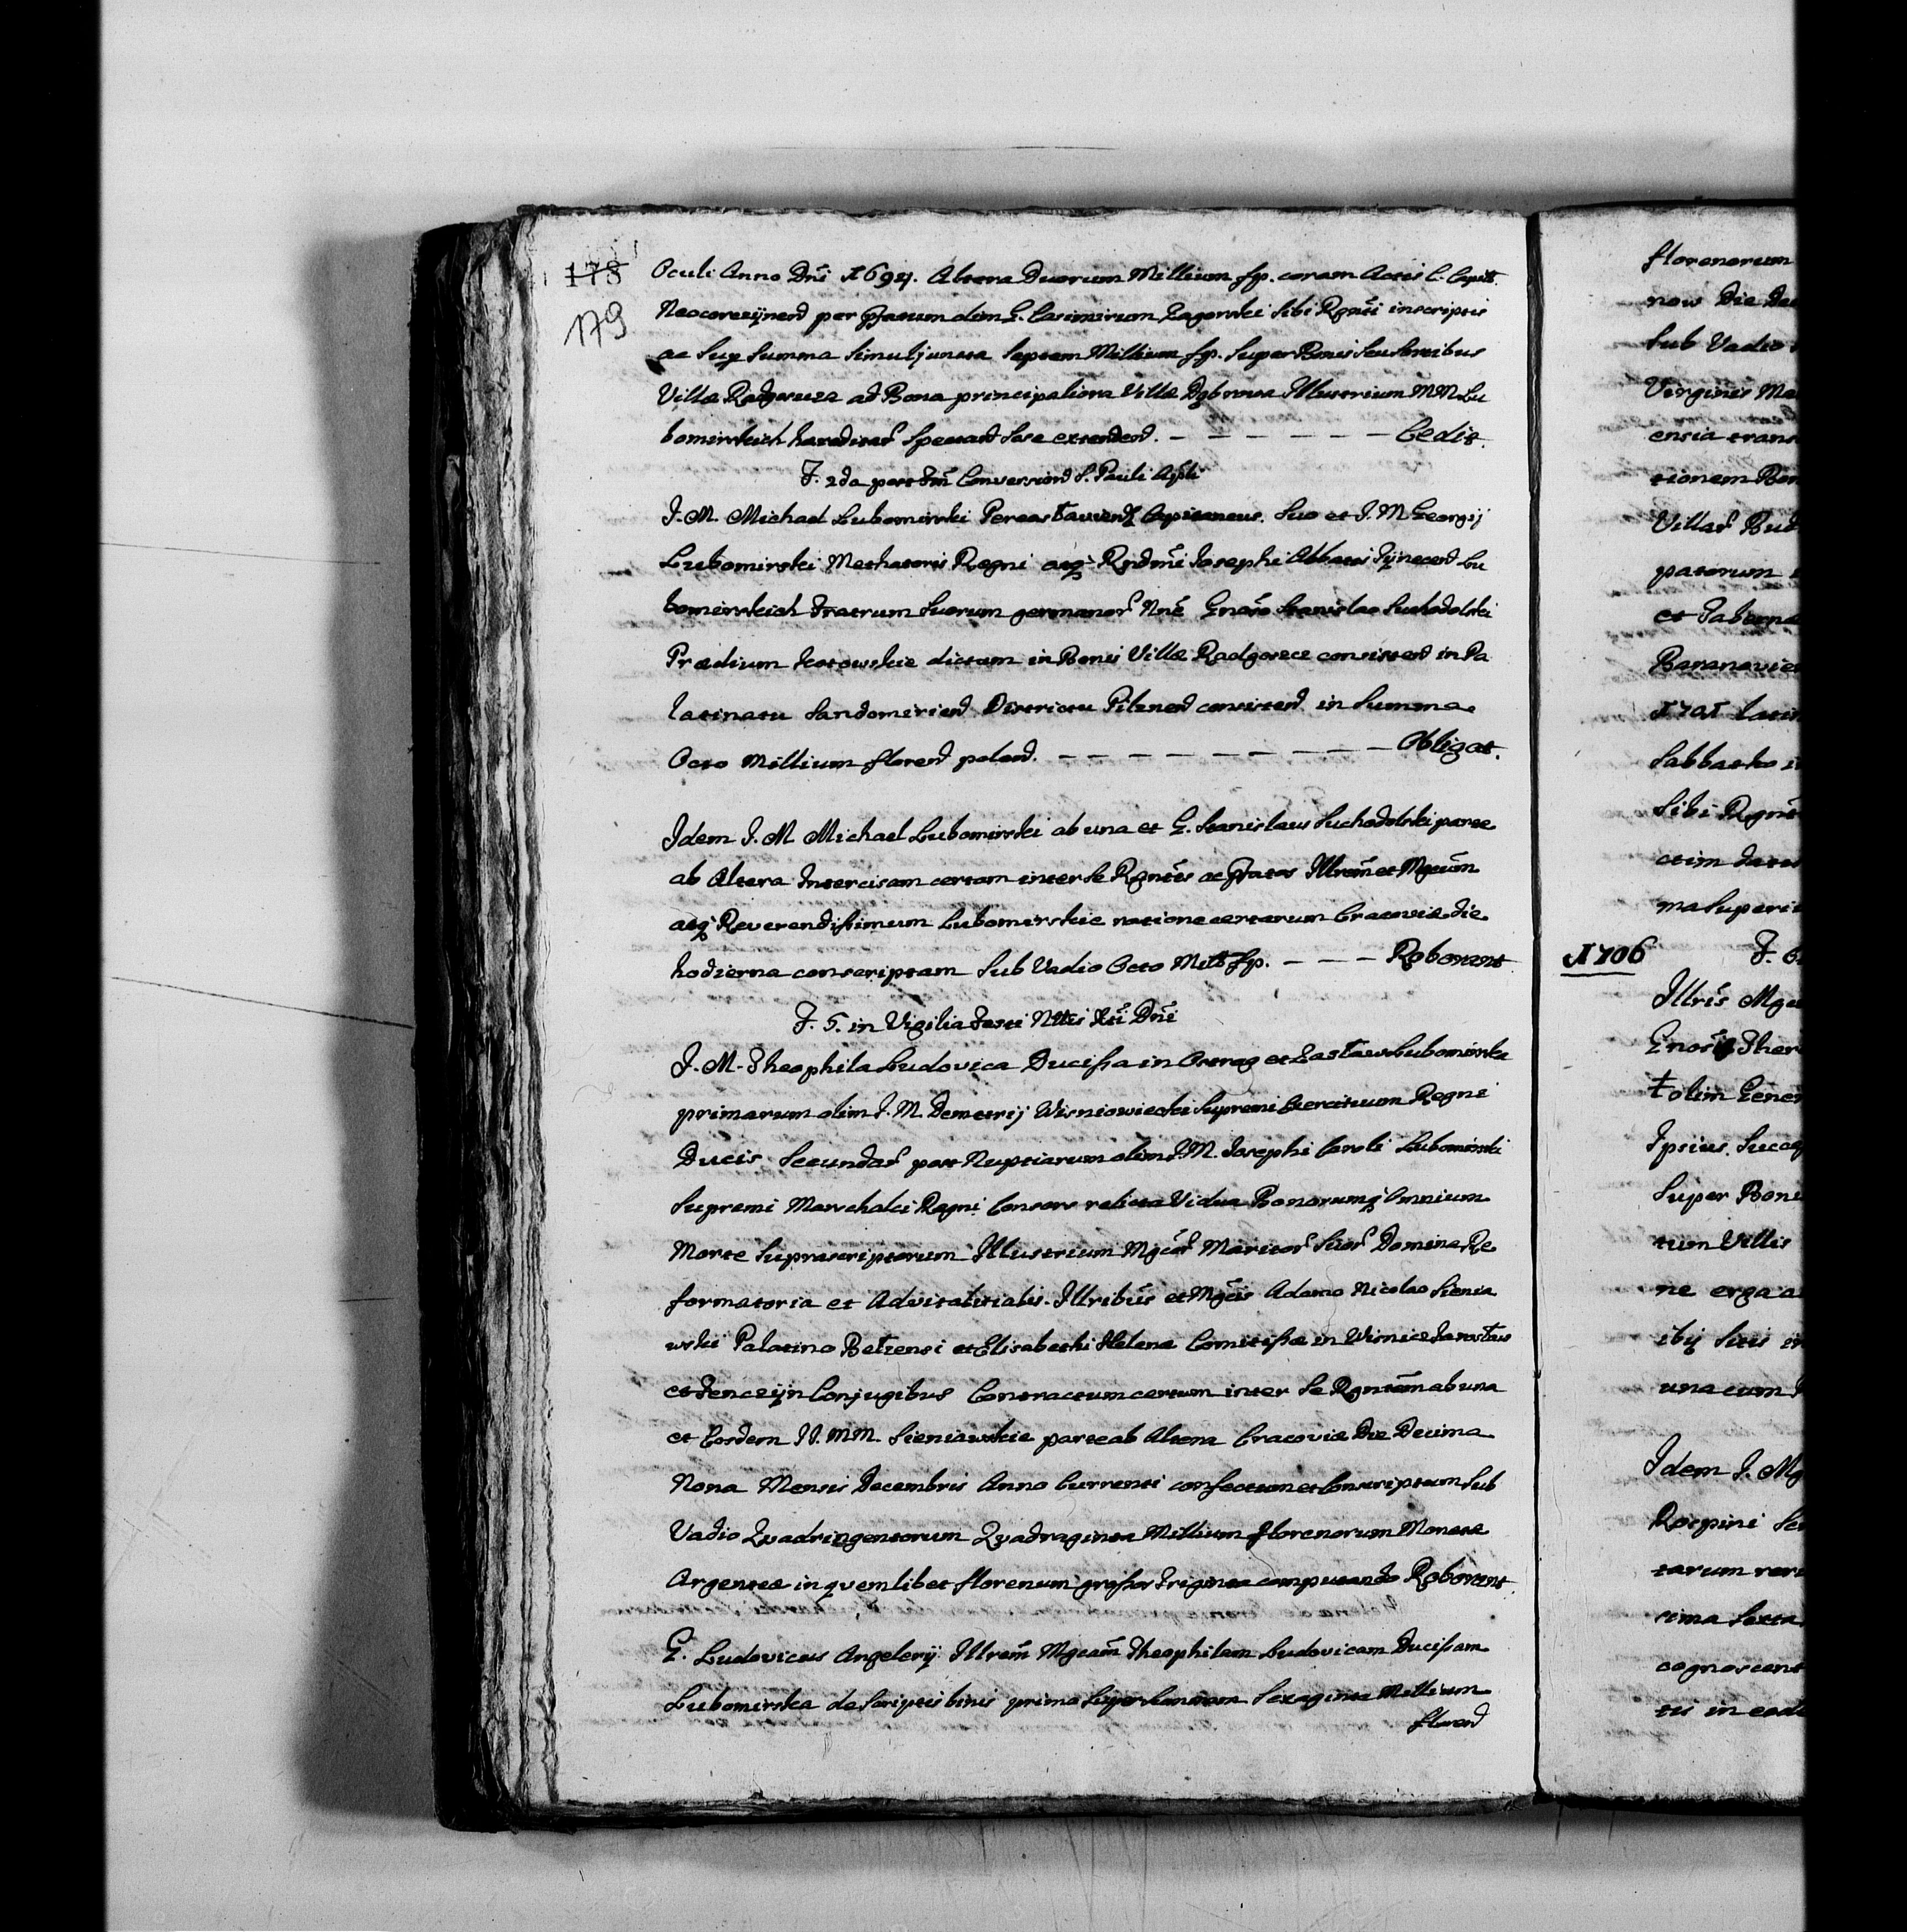 178
179
Oculi Anno Dni 1694. Altera Duorum Millium fp. coram Actis C. Capit.
Neocorczynen per Pfatum olim G. Casimirum Zagorski sibi Rgnti inscriptis
ac Sup Summa simul juncta Septem Millium fp. Super Bonis seu Sortibus
Villæ Radgoszcz ad Bona principaliora Villæ Dąbrowa Illustrium MM Lu
bomirskich hæreditar Spectand sese extendend. — — — — — — Cedit.
F. 2da post Fm Conversionis S. Pauli Apli
I. M. Michael Lubomirski Pereasłavien Capitaneus. Suo et I. M Georgij
Lubomirski Methatoris Regni atq Rndmi Josephi Abbatis Tÿnecen Lu
bomirskich Fratrum Suorum germanor Nne Gnoso Stanislao Suchodolski
Prædium Kotowskie dictum in Bonis Villæ Radgoszcz consisten in Pa
latinatu Sandomirien Districtu Pilznen consisten in Summa
Octo Millium floren polon. — — — — — — — — — Obligat.
Idem I. M Michael Lubomirski ab una et G. Stanislaus Suchodolski parte
ab Altera Intercisam certam inter se Rgntes ac Pfatos Illrem et Mgcum
atq Reverendissimum Lubomirskie ratione certarum Cracoviæ die
hodierna conscriptam Sub Vadio Octo Mill fp. — — — Roborant
F. 5. in Vigilia Festi Nttis Xti Dni
I. M. Theophila Ludovica Ducissa in Ostrog et Zasław Lubomirska
primarum olim I. M. Demetrij Wisniowiecki Supremi Exercituum Regni
Ducis Secundar post Nuptiarum olim I. M. Josephi Caroli Lubomirski
Supremi Marschalci Regni Consors relicta Vidua Bonorumq Omnium
Morte Suprascriptorum Illustrium Mgcor Maritor Suor Domina Re
formatoria et Advitalitialis. Illribus et Mgcis Adamo Nicolao Sienia
wski Palatino Bełzensi et Elisabethi Helenæ Comitissæ in Wisnicz Jarosław
et Tenczÿn Conjugibus Contractum certum inter Se Rgntem ab una
et Eosdem II. MM. Sieniawskie parte ab Altera Cracoviæ Die Decima
Nona Mensis Decembris Anno Currenti confectum et Conscriptum Sub
Vadio Quadringentorum Quadraginta Millium florenorum Monetæ
Argenteæ in quemlibet florenum grossos triginta computando Roborant
G. Ludovicus Angelerÿ Illrem Mgcam Theophilam Ludovicam Ducissam
Lubomirska de Scriptis binis primo Super Summam Sexaginta Millium
floren
florenorum
now Die
Sub Vadio
Virginis
ensia
tionem
Villar
patorum
et Taberna
1701
Sabbatho
Sibi
ctim
ma Superi
1706 F.
Illris
olim
Ipsius
Super Boni
tum Villis
ne erga
ibÿ Suis
una cum
Idem I. Mg
tarum
cima Sexta
cognoscent
tis in